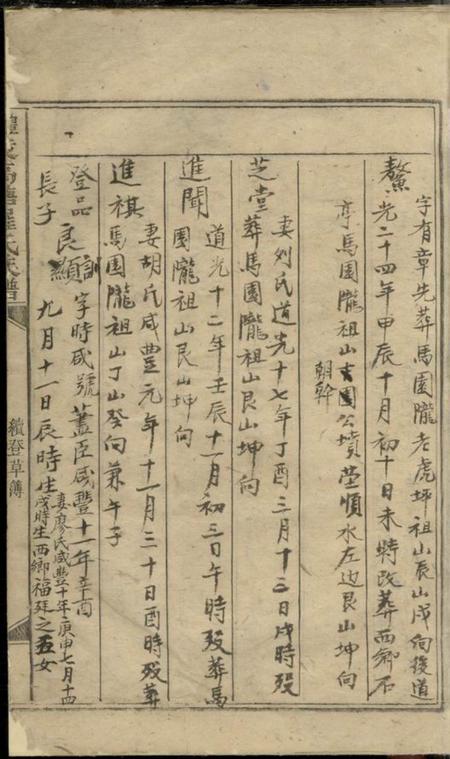 鰲
字有章先葬馬園隴老虎坪祖山辰山戌向後道
光二十四年甲辰十月初十日未時改葬西鄉石
亭馬園隴祖山古園公墳塋順水左边艮山坤向
朝幹
芝堂
妻刘氏道光十七年丁酉三月十三日戌時歿
葬馬園隴祖山艮山坤向
進聞
道光十二年壬辰十一月初三日午時歿葬馬
園隴祖山艮山坤向
進祺
妻胡氏咸豐元年十一月三十日酉時歿葬
馬園隴祖山丁山癸向兼午子
登品
長子
良訓
顯
字時咸號蓋臣咸豐十一年辛酉
九月十一日辰時生
妻廖氏咸豐十年庚申七月十四
戌時生西鄉福廷之五女
氏譜
續登草簿